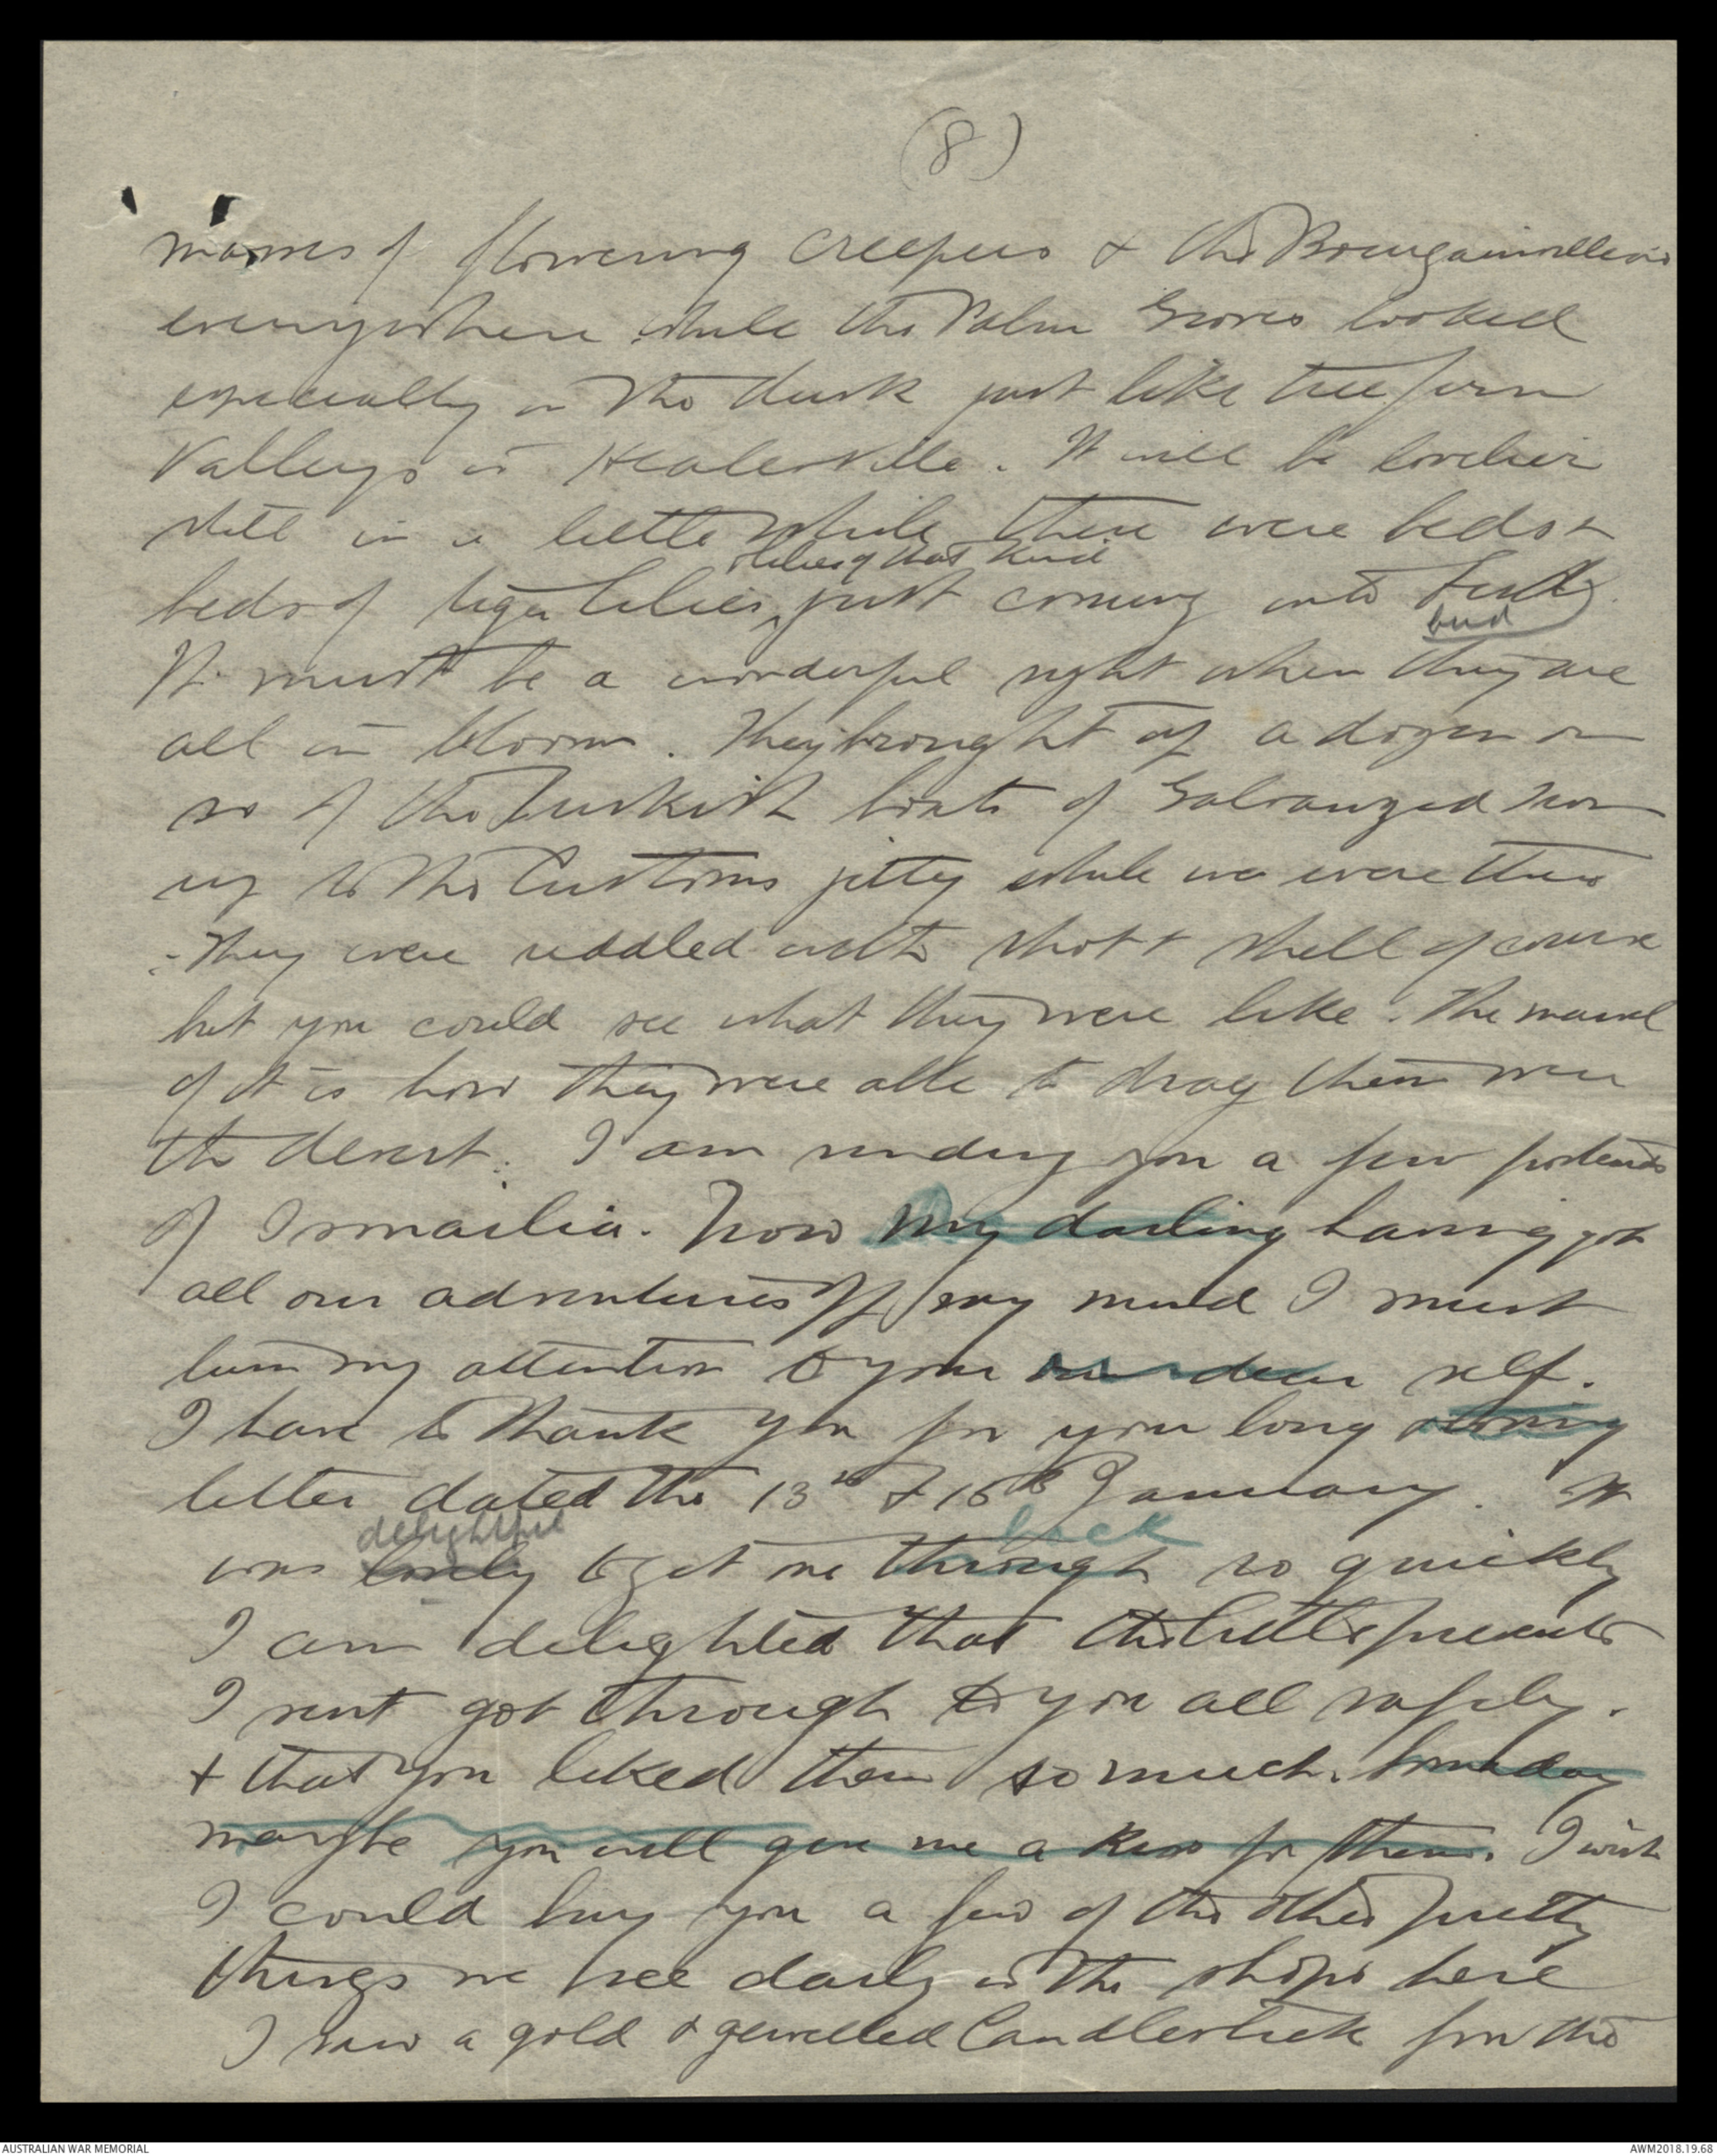 (8)
masses of flowering creepers & the Bougainvilleas
everywhere while the Palm Groves looked
especially in the dusk just like tree fern
Valleys in Healesville. It will be lovelier
still in a little while there were beds &
lilies of that kind
beds of tiger lilies, just coming into bud
bud
It must be a wonderful sight when they are
all in bloom. They brought up a dozen or
so of the Turkish boats of Galvanized Iron
up to the Customs jetty while we were there
- They were riddled with shot & shell of course
but you could see what they were like. The marvel
of it is how they were able to drag them over
the desert. I am sending you a few postcards
of Ismailia. Now my darling having got
all our adventures off my mind I must
turn my attention to your own dear self.
I have to thank you for your long loving
letter dated the 13th & 15th January. It
delightful back
was lovely to get me through so quickly
I am delighted that the little presents
I sent got through to you all safely.
& that you liked them so much. Someday
maybe you will give me a kiss for them. I wish
I could buy you a few of the other pretty
things we see daily in the shops here
I saw a gold & gewelled Candlestick for the
AUSTRALIAN WAR MEMORIAL
AWM2018.19.68